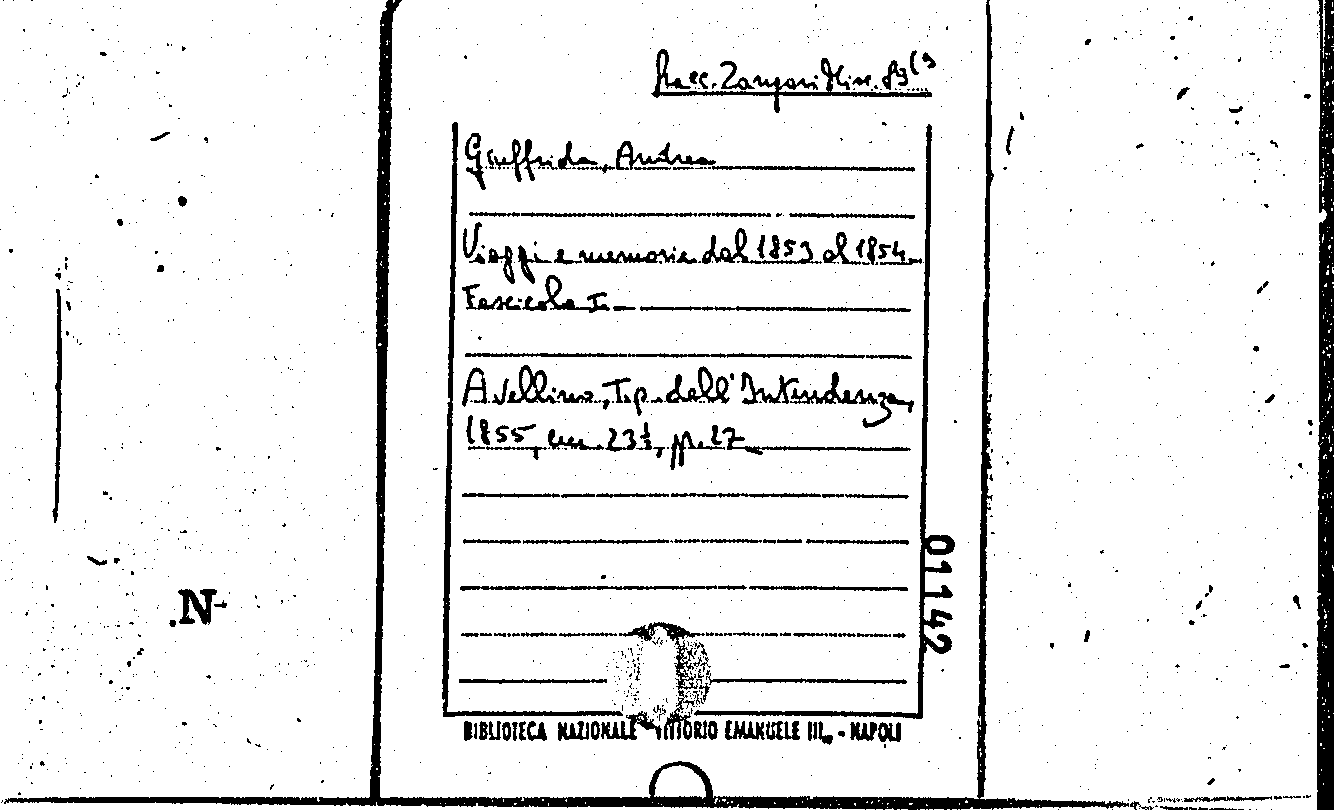 Racc. Zangari Misc. 83(9
Giuffrida, Andrea
Viaggi e memorie dal 1853 al 1854.
Fascicolo I.
Avellino, Tip. dell'Intendenza,
1855, cm. 23½, pp. 27
01142
.N-
BIBLIOTECA NAZIONALE VITTORIO EMANUELE III - NAPOLI